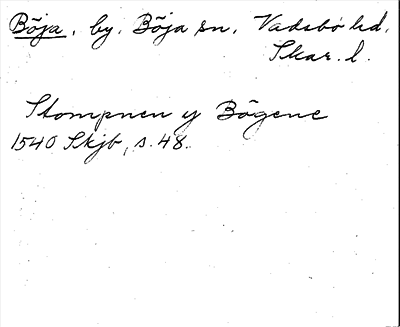 Böja, by, Böja sn, Vadsbo hd,
Skar. l.
Stompnen y Bögene
1540 Skjb, s. 48.